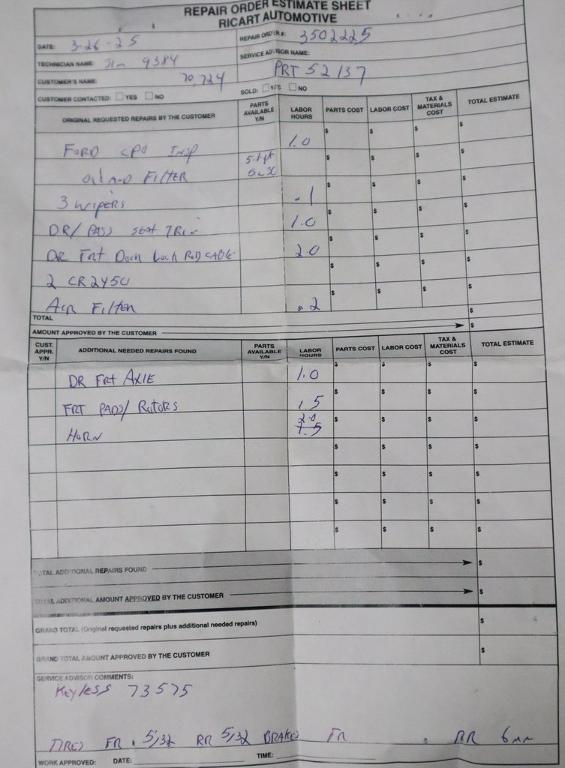 REPAIR ORDER ESTIMATE SHEET
RICART AUTOMOTIVE
DATE: 3-26-25 REPAIR ORDER #: 3502225
TECHNICIAN NAME: Jim 9384 SERVICE ADVISOR NAME:
CUSTOMER'S NAME: 70,724 PRT 52137
CUSTOMER CONTACTED: YES NO SOLD: YES NO
ORIGINAL REQUESTED REPAIRS BY THE CUSTOMER PARTS AVAILABLE Y/N LABOR HOURS PARTS COST LABOR COST TAX & MATERIALS COST TOTAL ESTIMATE
FORD CPO Insp 1.0 $ $ $ $
Oil AND FILTER 5w30 $ $ $ $
3 wipers .1 $ $ $ $
DR/ PASS seat TRim 1.0 $ $ $ $
DR Frt Door Lock Rod CABLE 2.0 $ $ $ $
2 CR2450 $ $ $ $
AIR FILTER .2 $ $ $ $
TOTAL $
AMOUNT APPROVED BY THE CUSTOMER $
CUST. APPR. Y/N ADDITIONAL NEEDED REPAIRS FOUND PARTS AVAILABLE Y/N LABOR HOURS PARTS COST LABOR COST TAX & MATERIALS COST TOTAL ESTIMATE
DR FRT AXLE 1.0 $ $ $ $
FRT PADS/ ROTORS 1.5 $ $ $ $
HORN 2.0 1.5 $ $ $ $
$ $ $ $
$ $ $ $
$ $ $ $
$ $ $ $
TOTAL ADDITIONAL REPAIRS FOUND $
TOTAL ADDITIONAL AMOUNT APPROVED BY THE CUSTOMER $
GRAND TOTAL (Original requested repairs plus additional needed repairs) $
GRAND TOTAL AMOUNT APPROVED BY THE CUSTOMER $
SERVICE ADVISOR COMMENTS:
Keyless 73575
TIRES FR 5/32 RR 5/32 BRAKES FR RR 6mm
WORK APPROVED: DATE: TIME: